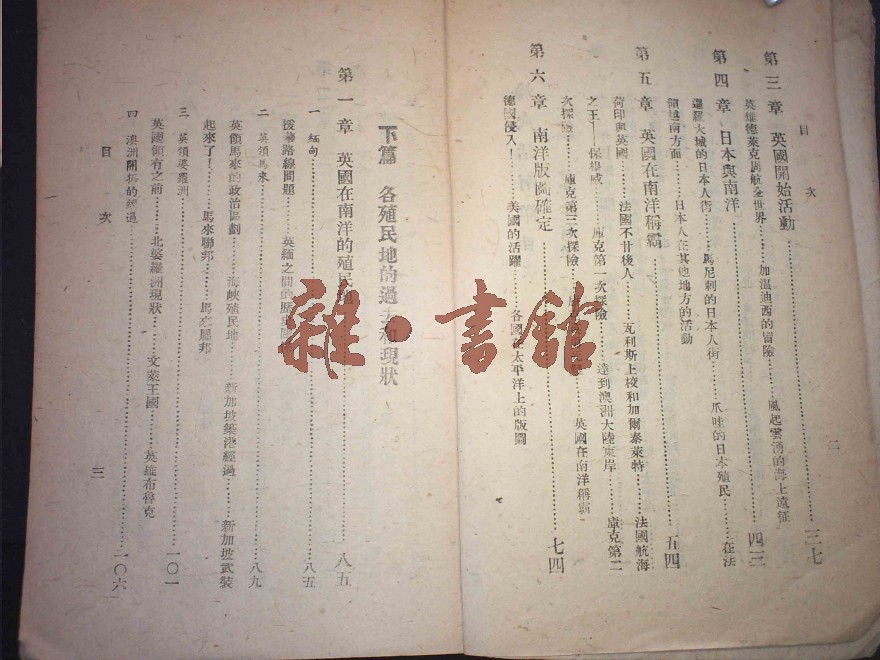 目次
二
第三章 英國開始活動……三七
英雄德萊克周航全世界……加溫迪西的冒險……風起雲湧的海上遠征
第四章 日本與南洋……四三
暹羅大城的日本人街……馬尼剌的日本人街……爪哇的日本殖民……在法
領越南方面……日本人在其他地方的活動
第五章 英國在南洋稱霸……五四
荷印與英國……法國不甘後人……瓦利斯上校和加爾泰萊特……法國航海
之王——保……庫克第一次探險……達到澳洲大陸東岸……庫克第二
次探險……庫克第三次探險……英國在南洋稱霸
第六章 南洋版圖確定……七四
德國侵入！……美國的活躍……各國在太平洋上的版圖
下篇 各殖民地的過去和現狀
第一章 英國在南洋的殖民地……八五
一 緬甸……八五
援華路線問題……英緬之間的歷史
二 英領馬來……八九
英領馬來的政治區劃……海峽殖民地……新加坡築港經過……新加坡武裝
起來了……馬來聯邦……馬來屬邦
三 英領婆羅洲……一〇一
英國領有之前……北婆羅洲現狀……文萊王國……英雄布魯克
四 澳洲開拓的經過……一〇六
目次
三
雜·書館